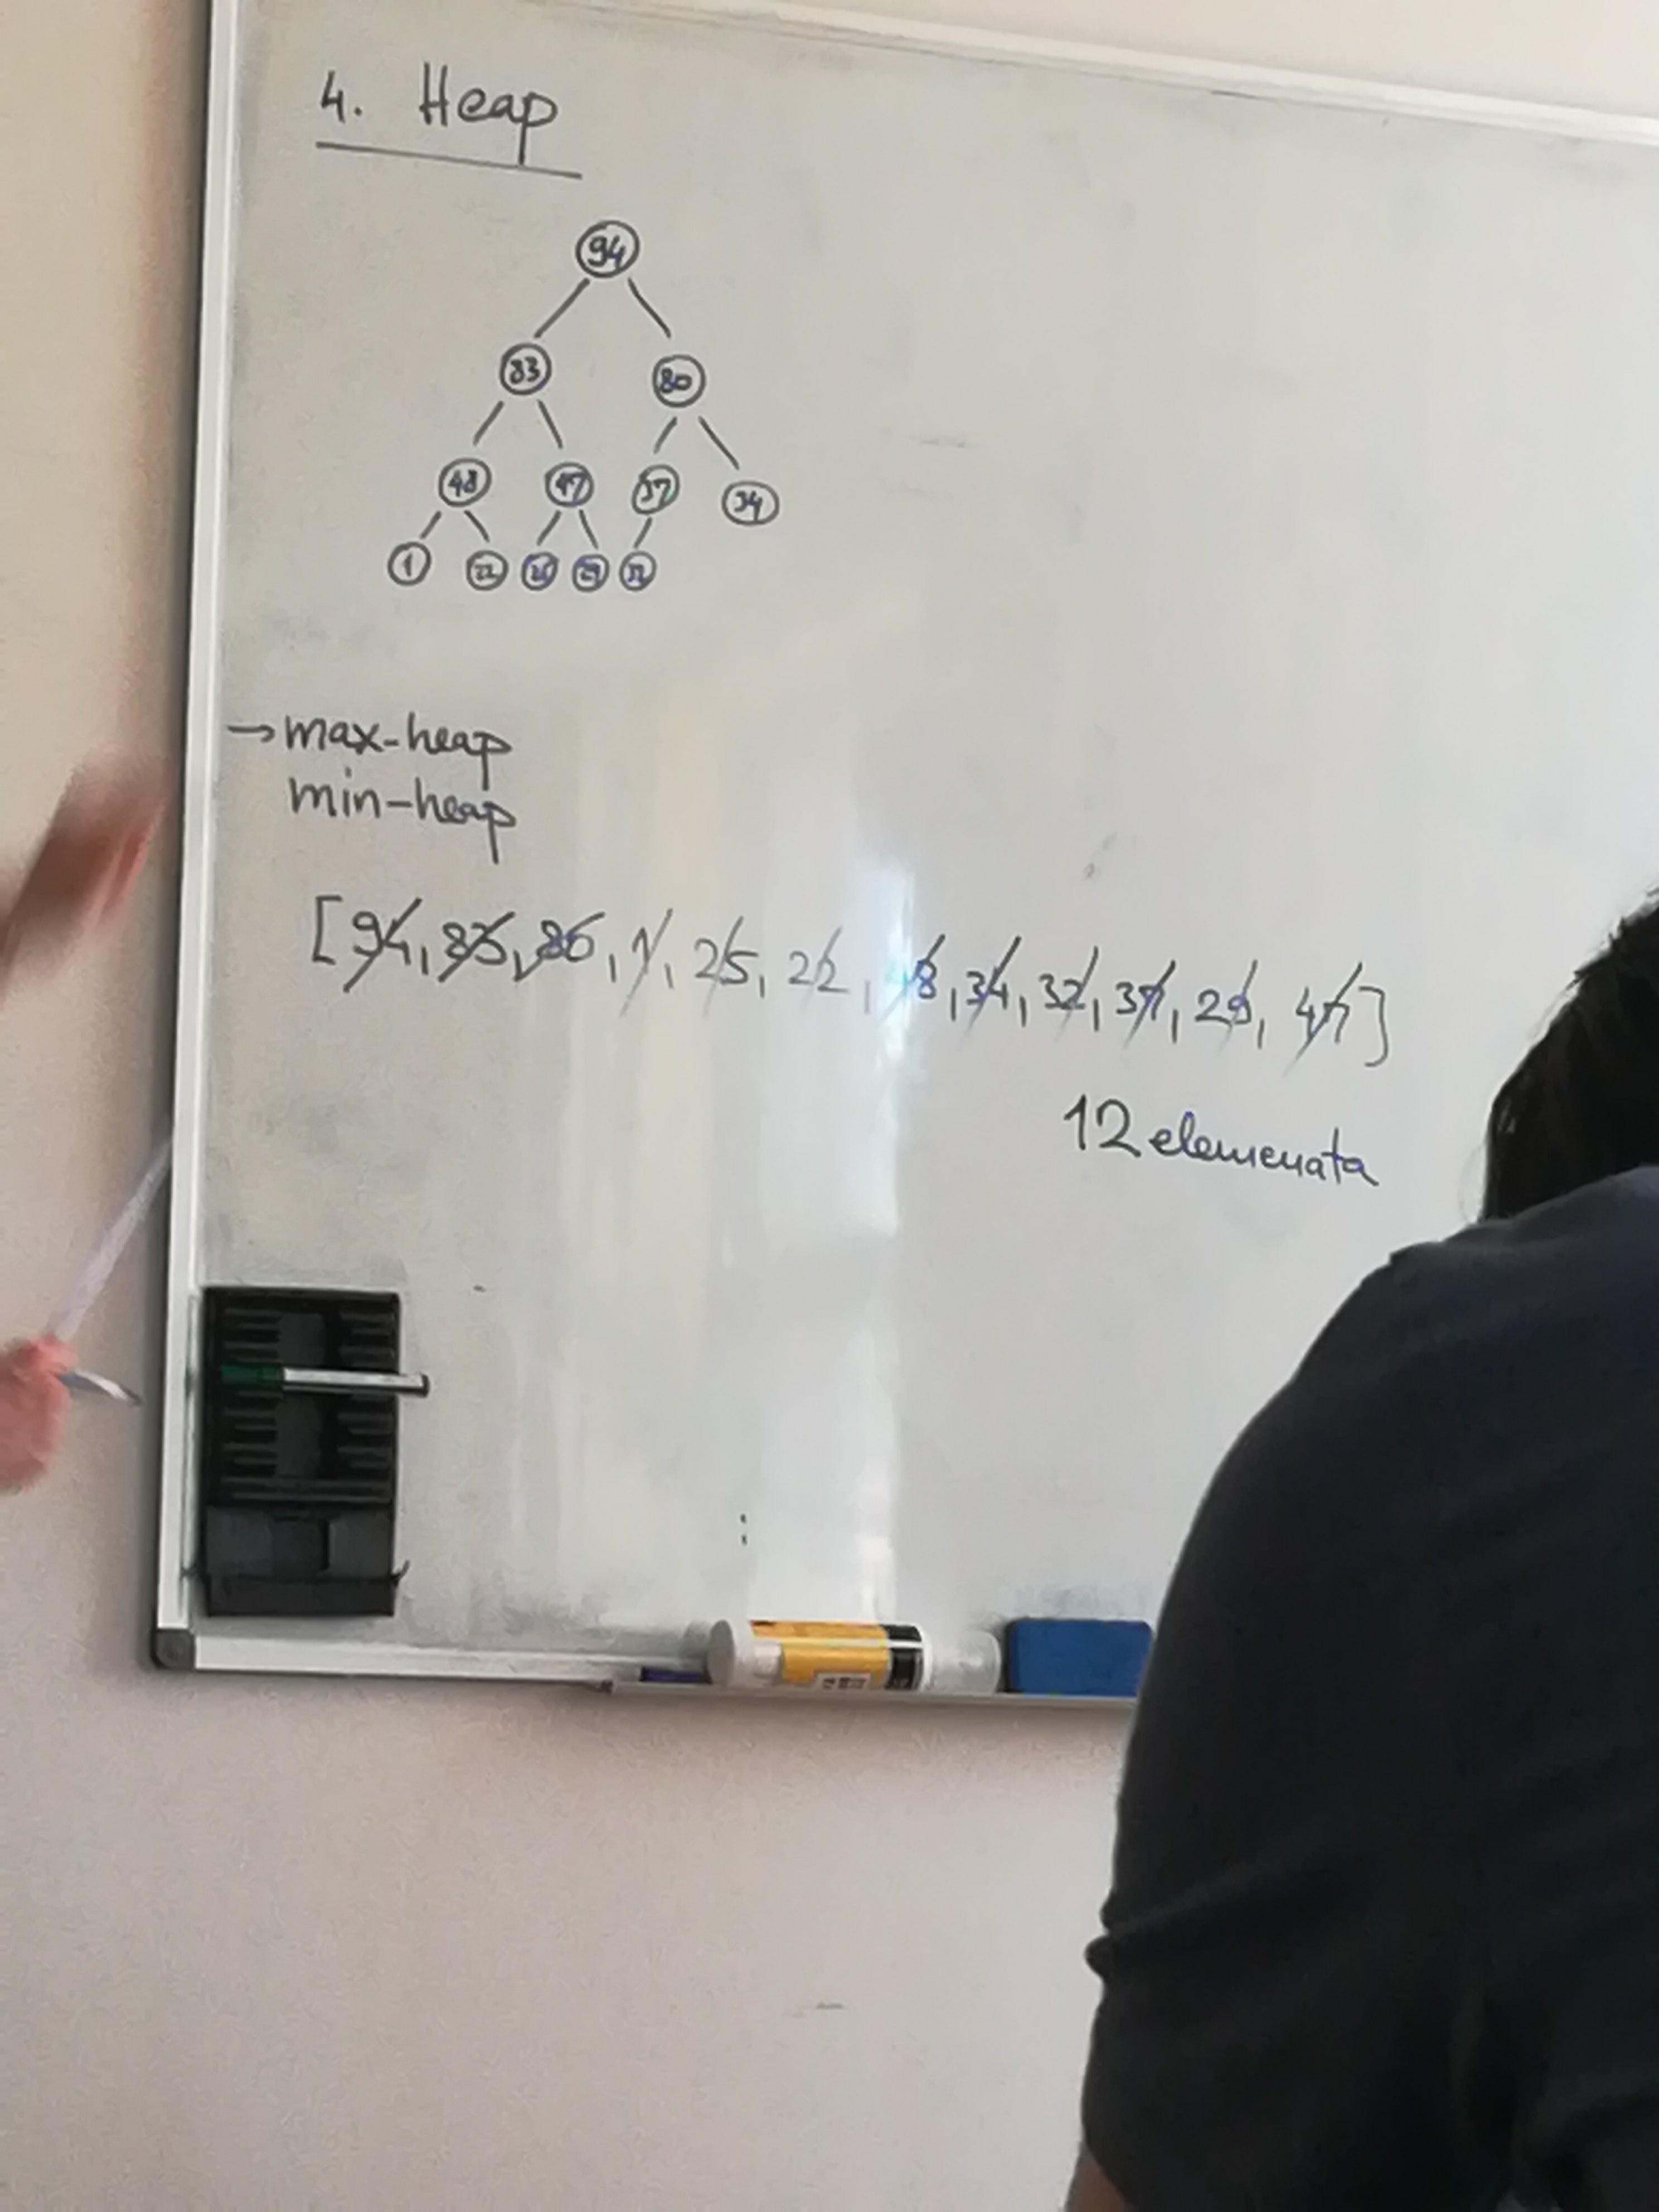 4. Heap
94
83 80
48 47 37 34
1 22 25 29 32
→ max-heap
min-heap
[94, 83, 80, 1, 25, 22, 48, 34, 32, 37, 29, 47]
12 elemenata